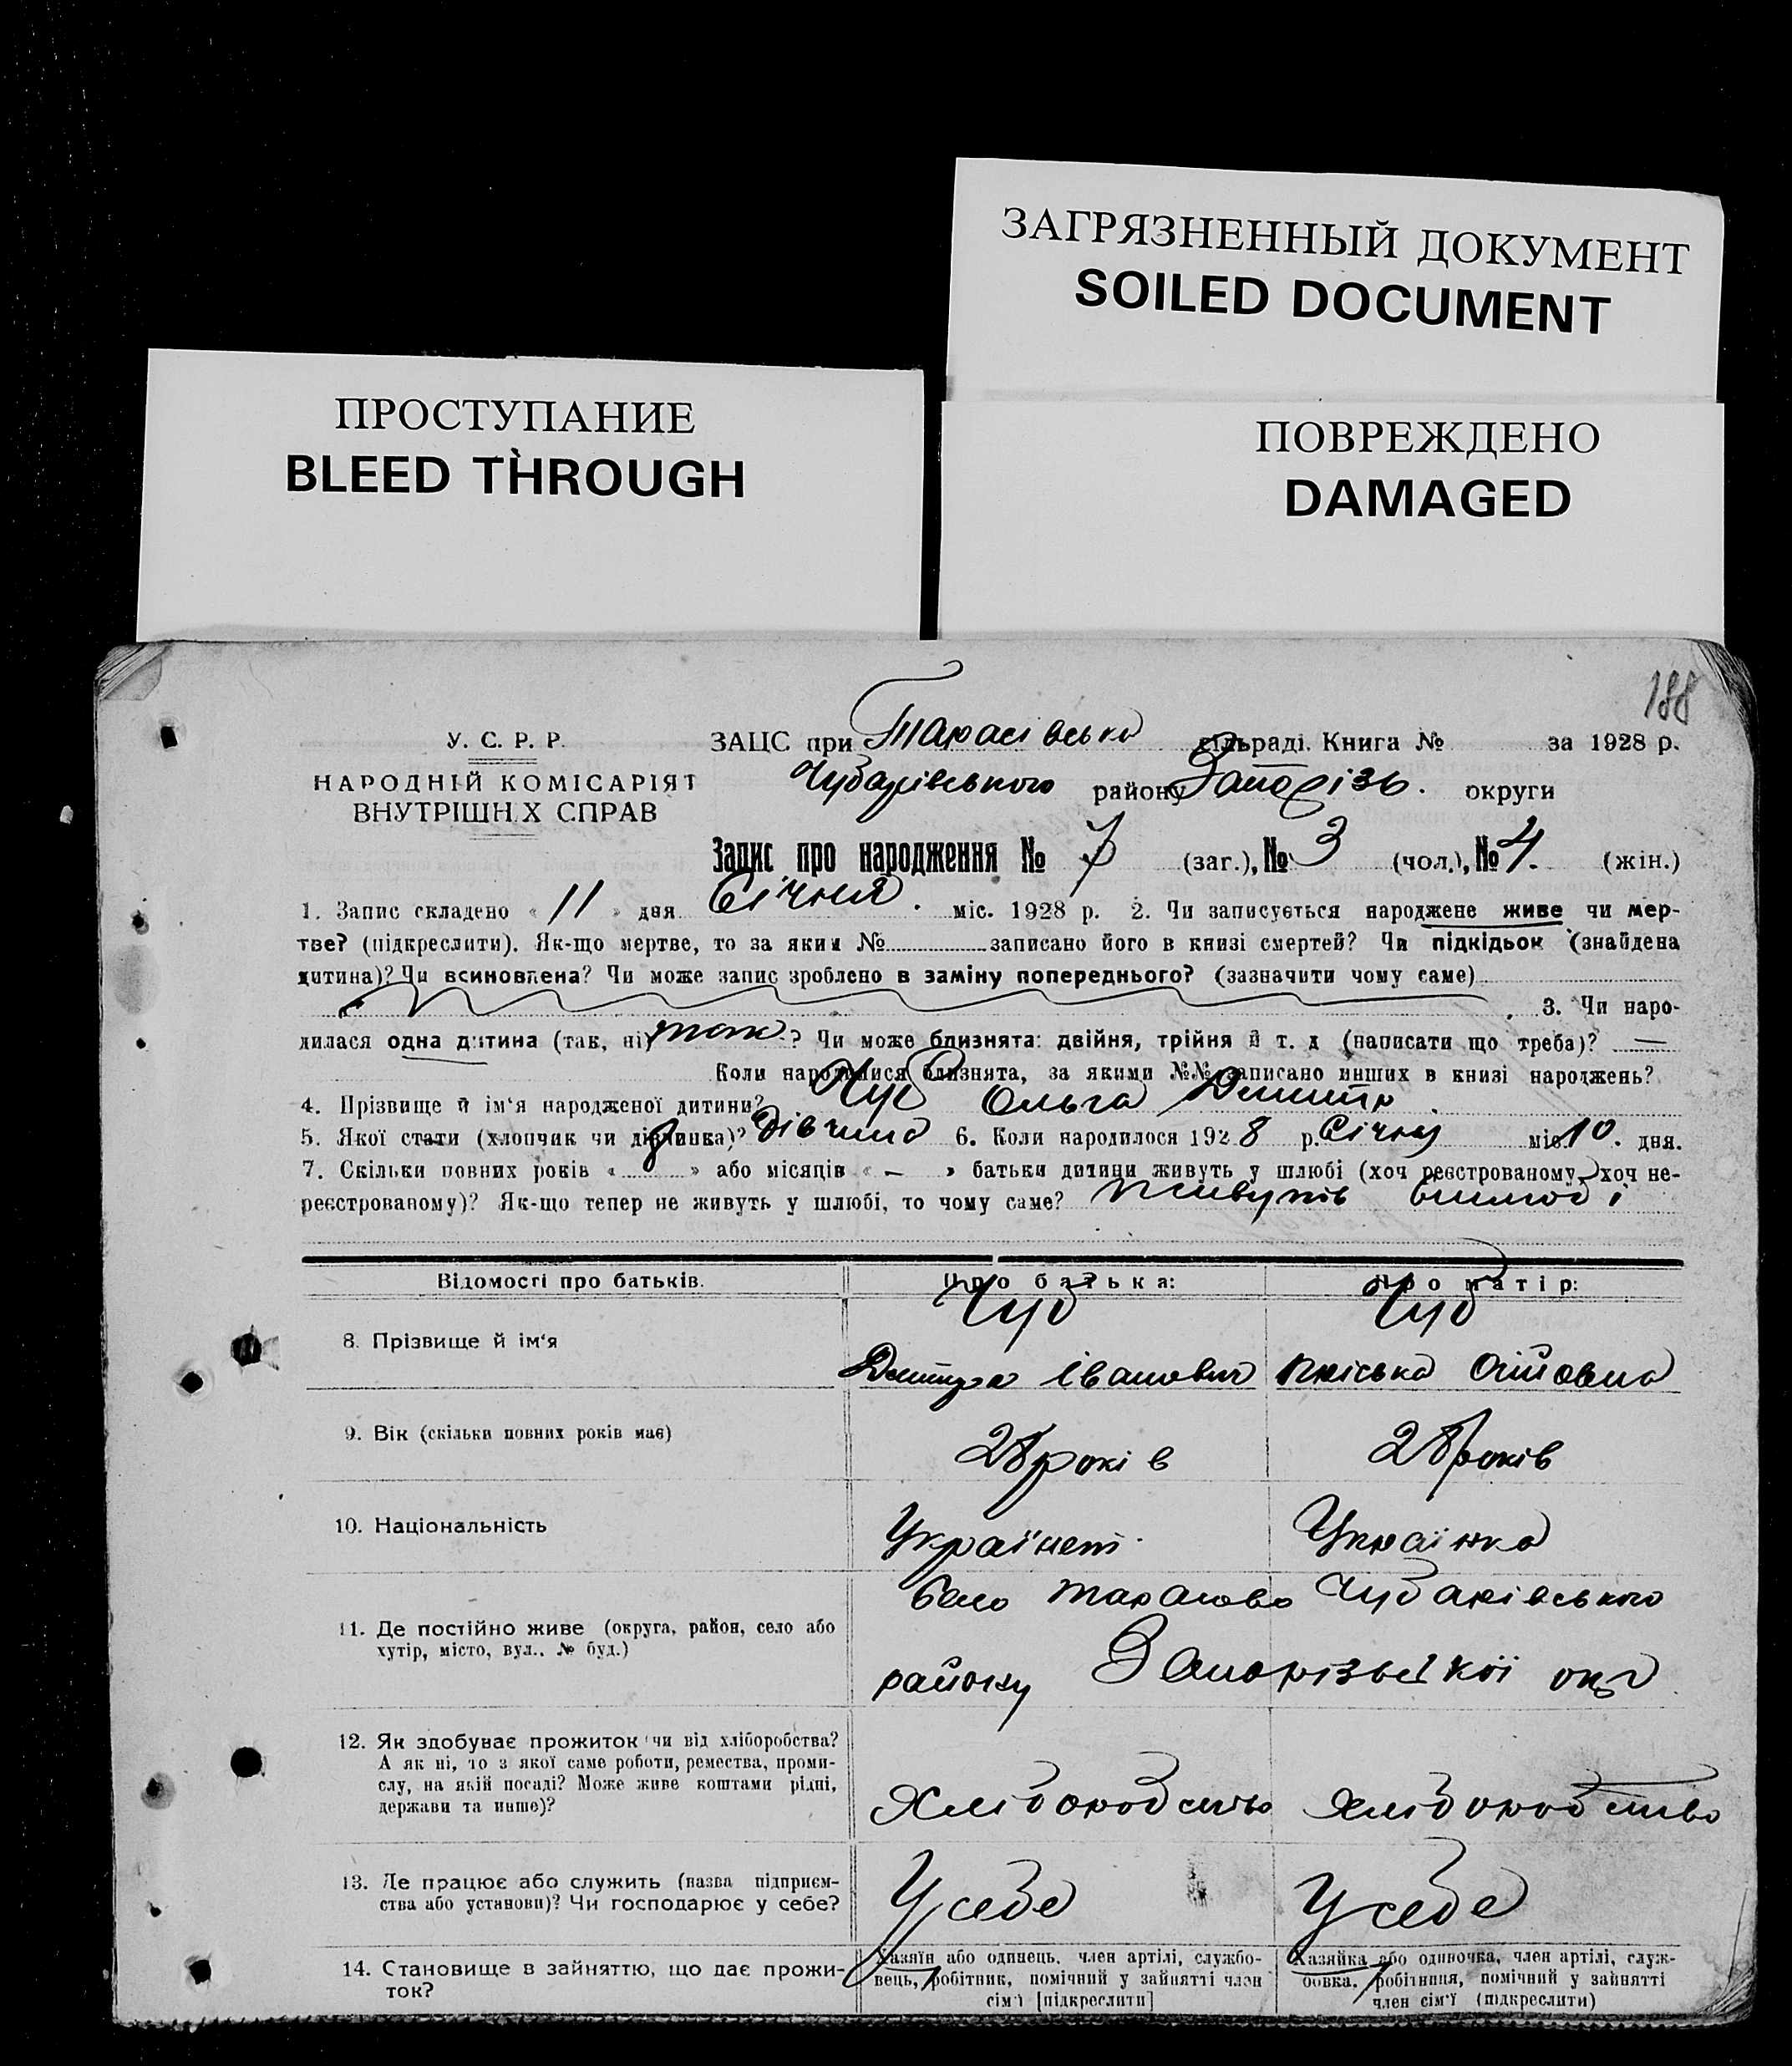 ЗАГРЯЗНЕННЫЙ ДОКУМЕНТ
SOILED DOCUMENT
ПРОСТУПАНИЕ
BLEED THROUGH
ПОВРЕЖДЕНО
DAMAGED
188
У. С. Р. Р.
НАРОДНІЙ КОМІСАРІЯТ
ВНУТРІШНІХ СПРАВ
ЗАЦС при Тарасівська сільраді. Книга № за 1928 р.
Чубарівського району Запорізь. округи
Запис про народження № 7 (заг.), № 3 (чол.), № 4. (жін.)
1. Запис складено « 11 » дня Січня. міс. 1928 р. 2. Чи записується народжене живе чи мер-
тве? (підкреслити). Як-що мертве, то за яким № записано його в книзі смертей? Чи підкідьок (знайдена
дитина)? Чи всиновлена? Чи може запис зроблено в заміну попереднього? (зазначити чому саме)
3. Чи наро-
дилася одна дитина (так, ні) так ? Чи може близнята: двійня, трійня й т. д (написати що треба)? —
Коли народилися близнята, за якими №№ записано инших в книзі народжень?
4. Прізвище й ім'я народженої дитини? Чуб Ольга Дмитр
5. Якої стати (хлопчик чи дівчинка)? Дівчина 6. Коли народилося 1928 р. Січня міс. 10. дня.
7. Скільки повних років « 8 » або місяців « — » батьки дитини живуть у шлюбі (хоч реєстрованому, хоч не-
реєстрованому)? Як-що тепер не живуть у шлюбі, то чому саме? живуть
Відомості про батьків. Про батька: Про матір:
8. Прізвище й ім'я Чуб Чуб
Іванович
9. Вік (скільки повних років має) 28 років 28 років
10. Національність Українец Українка
11. Де постійно живе (округа, район, село або
хутір, місто, вул.. № буд.)
село Тарасовка Чубарівського
району Запорізської окр
12. Як здобуває прожиток чи від хліборобства?
А як ні, то з якої саме роботи, ремества, проми-
слу, на якій посаді? Може живе коштами рідні,
держави та инше)?
Хліборобство хліборобство
13. Де працює або служить (назва підприєм-
ства або установи)? Чи господарює у себе?
У себе У себе
14. Становище в зайняттю, що дає прожи-
ток?
Хазяїн або одинець, член артілі, службо-
вець, робітник, помічний у зайнятті член
сім'ї [підкреслити]
Хазяйка або одиночка, член артілі, служ-
бовка, робітниця, помічний у зайнятті
член сім'ї (підкреслити)